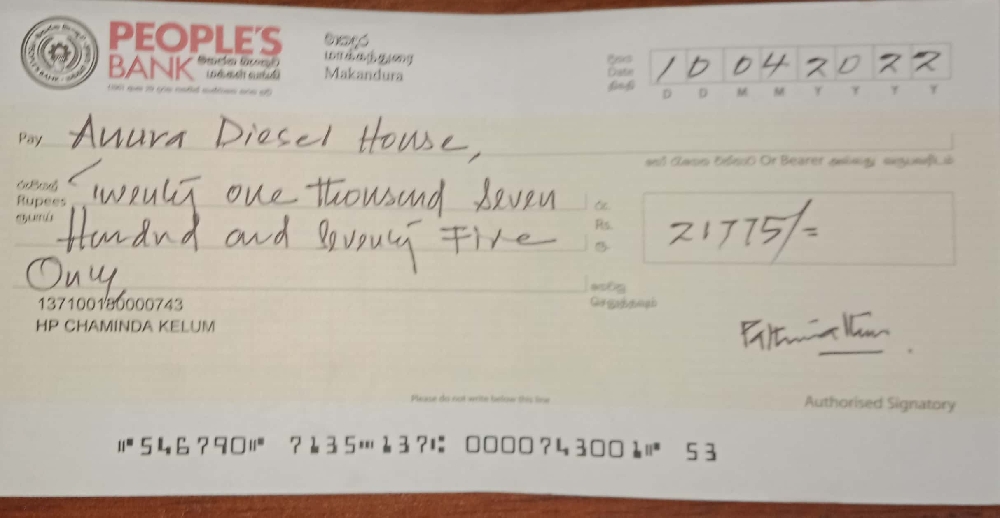 PEOPLE'S
BANK
මහජන බැංකුව
மக்கள் வங்கி
Makandura
Date
10 04 2022
D D M M Y Y Y Y
Pay Anura Diesel House,
Or Bearer
Rupees Twenty one thousand Seven
රුපියල්
ரூபாய்
Hundred and Seventy Five
Only
රු.
Rs.
ரூ.
21775/=
137100180000743
HP CHAMINDA KELUM
Please do not write below this line
Authorised Signatory
⑈546790⑈ 7135⑉137⑆ 0000743001⑈ 53